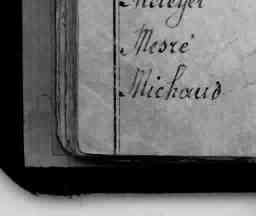 Mesré
Michaud